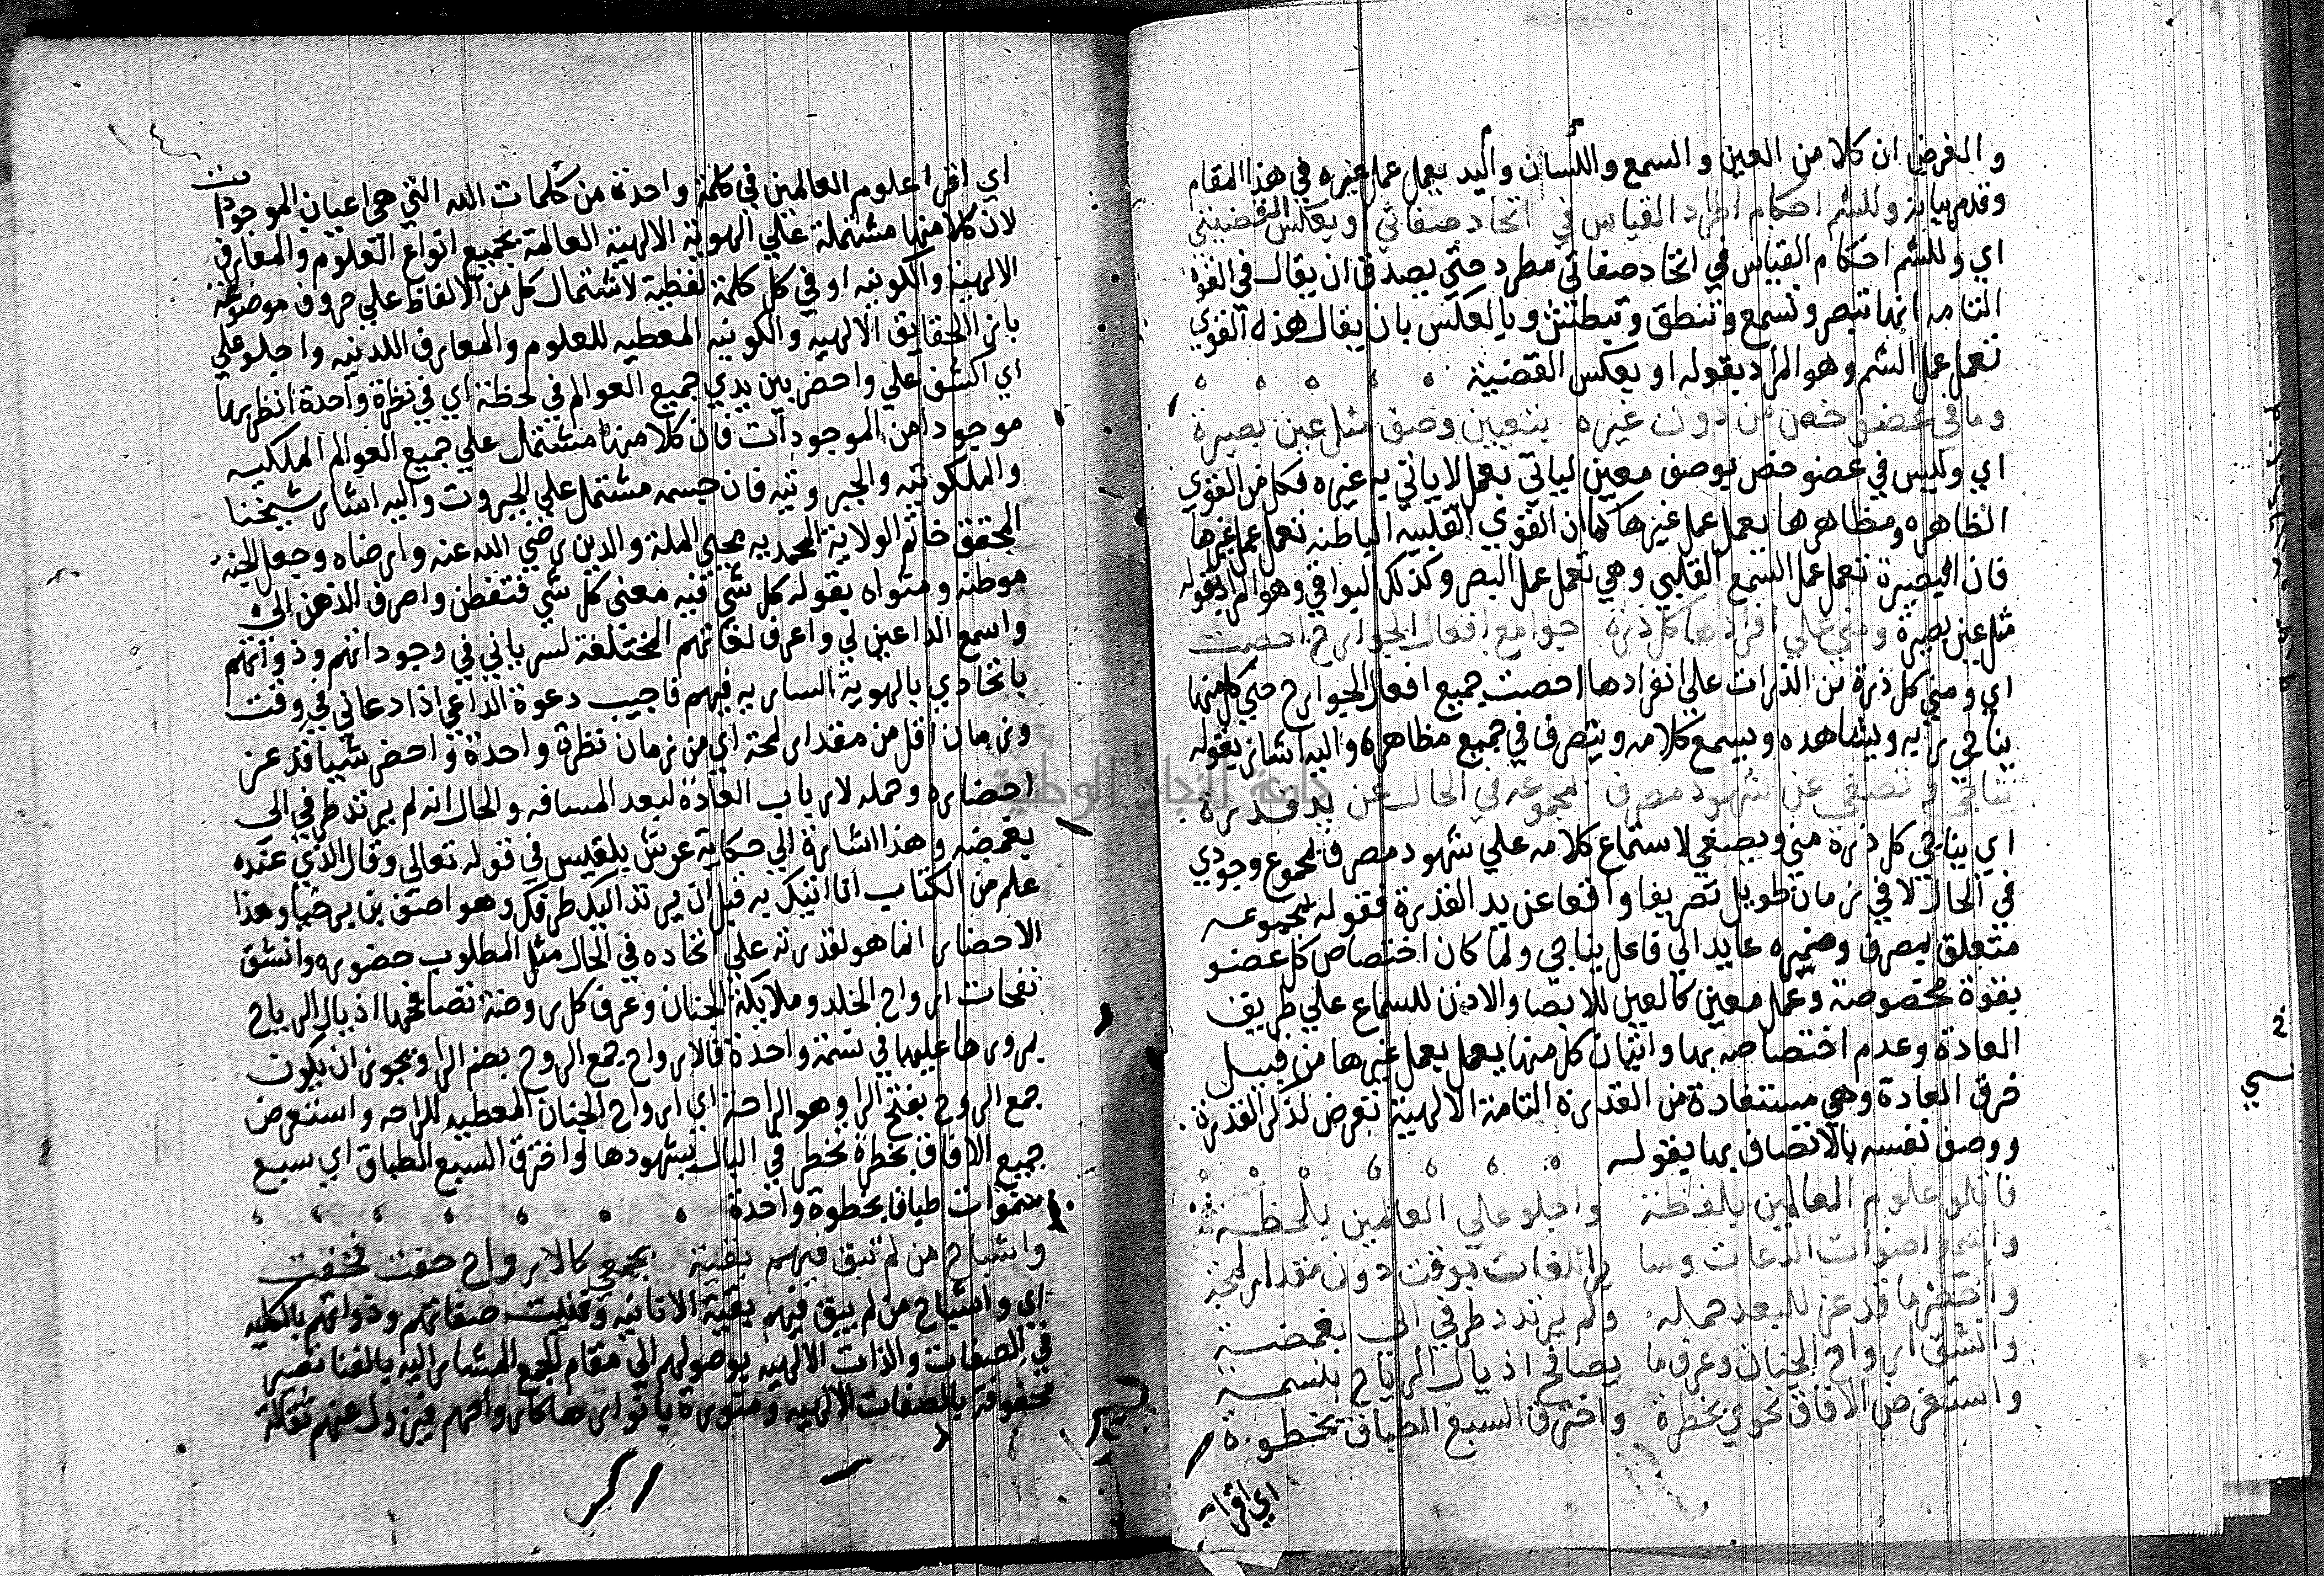 والغرض ان كلا من العين والسمع واللسان واليد يعمل عمل غيره في هذا المقام
وقدم بيانه وللشم احكام اطراد القياس في اتحاد صفاتي او بعكس القضيتي
اي وللشم احكام القياس في اتحاد صفاتي مطرد حتي يصدق ان يقال في القوة
الشامه انها تبصر وتسمع وتنطق وتبطش وبالعكس بان يقال هذه القوي
تعمل عمل الشم وهو المراد بقوله او بعكس القضية
وما في عضو خص من دون غيره بتعيين وصف مثل عين بصيرة
اي وليس في عضو خص بوصف معين لياتي بعمل لاياتي به غيره فكل من القوي
الظاهره ومظاهرها يعمل عمل غيرها كما ان القوي القلبيه الباطنه تعمل عمل غيرها
فان البصيرة تعمل عمل السمع القلبي وهي تعمل عمل البصر وكذلك البواقي وهو المراد بقوله
مثل عين بصيرة ومني علي افرادها كل ذرة جوامع افعال الجوارح احصت
اي ومني كل ذرة من الذرات علي انفرادها احصت جميع افعال الجوارح حتي كل منها
يناجي ربه ويشاهده ويسمع كلامه ويتصرف في جميع مظاهره واليه اشار بقوله
يناجي ويصغي عن شهود مصرف بمجموعه في الحال عن يد قدرة
اي يناجي كل ذرة مني ويصغي لاستماع كلامه علي شهود مصرف لمجموع وجودي
في الحال لا في زمان طويل تصريفا واقعا عن يد القدرة فقوله بمجموعه
متعلق بمصرف وضميره عايد الي فاعل يناجي ولما كان اختصاص كل عضو
بقوة مخصوصة وعمل معين كالعين للابصا والاذن للسماع علي طريق
العادة وعدم اختصاصه بها واتيان كل منها بعمل يعمل غيرها من قبيل
خرق العادة وهي مستفادة من القدرة التامة الالهية تعرض لذكر القدرة
ووصف نفسه بالاتصاف بها بقوله
فاتلو علوم العالمين بلفظة واجلو علي العالمين بلحظة
واسمع اصوات الدعات وسا ير اللغات بوقت دون مقدار لمحة
واحضر ما قد عز للبعد حمله ولم يرتدد طرفي الي بغمضة
وانشق ارواح الجنان وعرف ما يصافح اذيال الرياح بنسمة
واستعرض الافاق نحوي بخطرة واخترق السبع الطباق بخطوة
اي اقرا
اي اقرا علوم العالمين في كلمة واحدة من كلمات الله التي هي اعيان الموجودات
لان كلا منها مشتملة علي الهوية الالهية العالمة بجميع انواع العلوم والمعارف
الالهية والكونيه او في كل كلمة لفظية لاشتمال كل من الالفاظ علي حروف موضوعة
بازا الحقايق الالهيه والكونيه المعطيه للعلوم والمعارف اللدنيه واجلو علي
اي اكشف علي واحضر بين يدي جميع العوالم في لحظة اي في نظرة واحدة انظر بها
موجودا من الموجودات فان كلا منها مشتمل علي جميع العوالم الملكيه
والملكوتيه والجبروتيه فان جسمه مشتمل علي الجبروت واليه اشار شيخنا
المحقق خاتم الولاية المحمديه محيي الملة والدين رضي الله عنه وارضاه وجعل الجنة
موطنه ومثواه بقوله كل شي فيه معني كل شي فتفطن واصرف الذهن الي
واسمع الداعين لي واعرف لغاتهم المختلفة لسرياني في وجوداتهم وذواتهم
باتحادي بالهوية الساريه فيهم فاجيب دعوة الداعي اذا دعاني في وقت
وزمان اقل من مقدار لمحة اي من زمان نظرة واحدة واحضر شييا قد عز
احضاره وحمله لارباب العادة لبعد المسافه والحال انه لم يرتد طرفي الي
بغمضه وهذا اشارة الي حكاية عرش بلقيس في قوله تعالي وقال الذي عنده
علم من الكتاب انا اتيك به قبل ان يرتد اليك طرفك وهو اصف بن برخيا وهذا
الاحضار انما هو لقدرته علي اتحاده في الحال مثل المطلوب حضوره وانشق
نفحات ارواح الخلد وملايكة الجنان وعرف كل روضة تصافحها اذيال الرياح
بمرورها عليها في نسمة واحدة فالارواح جمع الروح بضم الرا ويجوز ان يكون
جمع الروح بفتح الرا وهو الراحة اي ارواح الجنان المعطيه للراحه واستعرض
جميع الافاق بخطرة تخطر في البال بشهودها واخترق السبع الطباق اي سبع
سموات طباقا بخطوة واحدة
واشباح من لم تبق فيهم بقية بجمعي كالارواح حفت فخفت
اي واشباح من لم يبق فيهم بقية الانانيه وفنيت صفاتهم وذواتهم بالكليه
في الصفات والذات الالهيه بوصولهم الي مقام الجمع المشار اليه بالفنا تصير
محفوفة بالصفات الالهيه ومنورة بانوارها كارواحهم فيزول عنهم ثقله